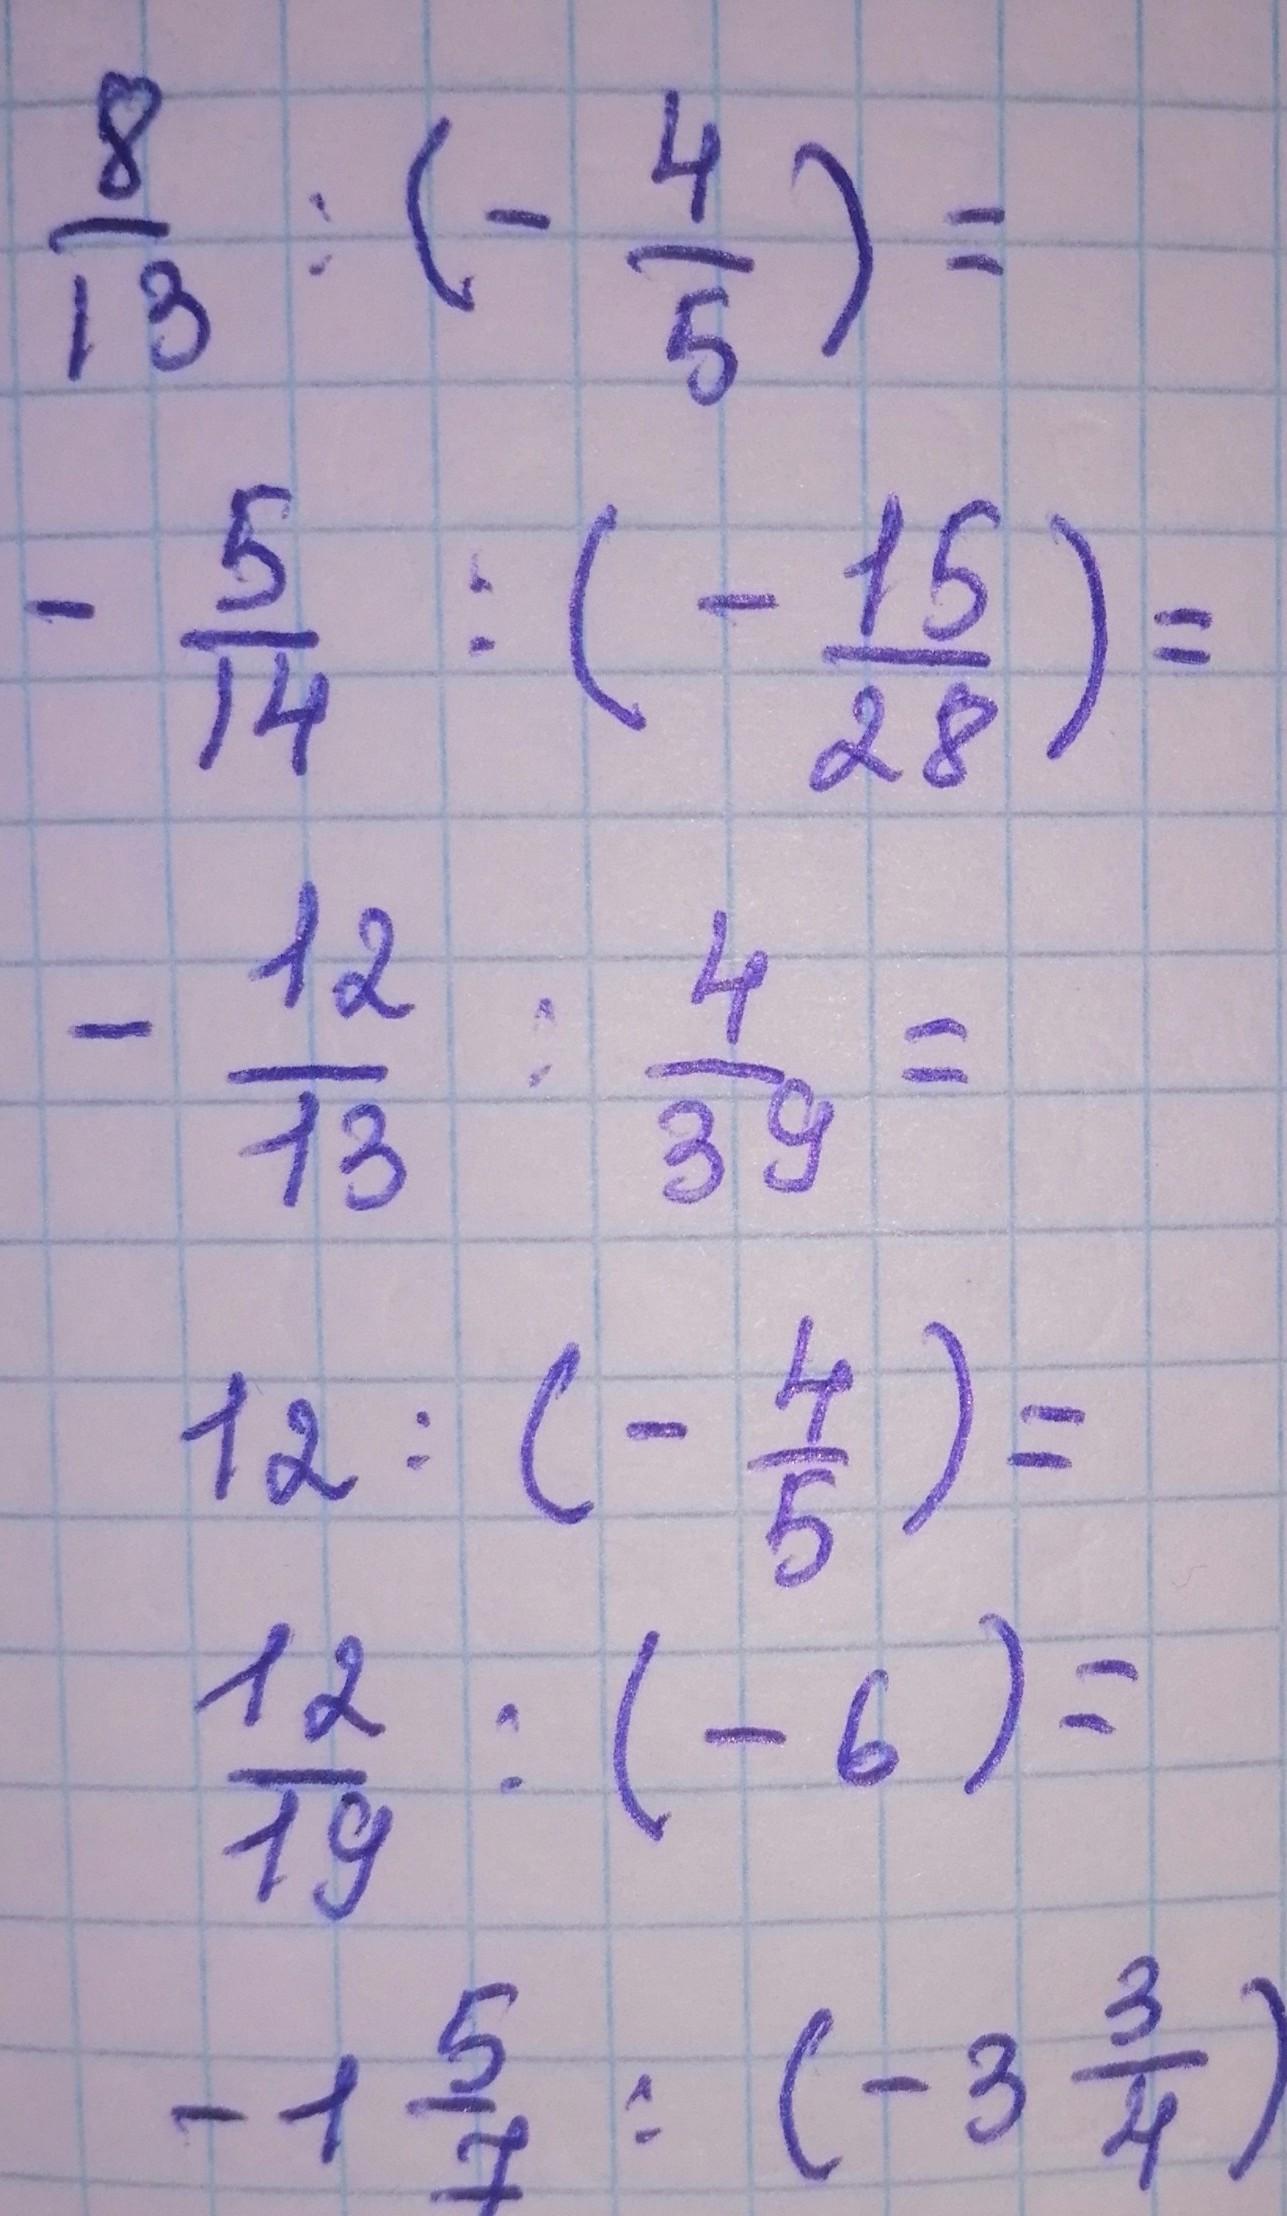 8/13 : (- 4/5) =
- 5/14 : (- 15/28) =
- 12/13 : 4/39 =
12 : (- 4/5) =
12/19 : (- 6) =
- 1 5/7 : (- 3 3/4)